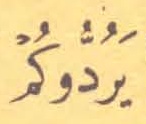 يَرُدُّوكُمْ